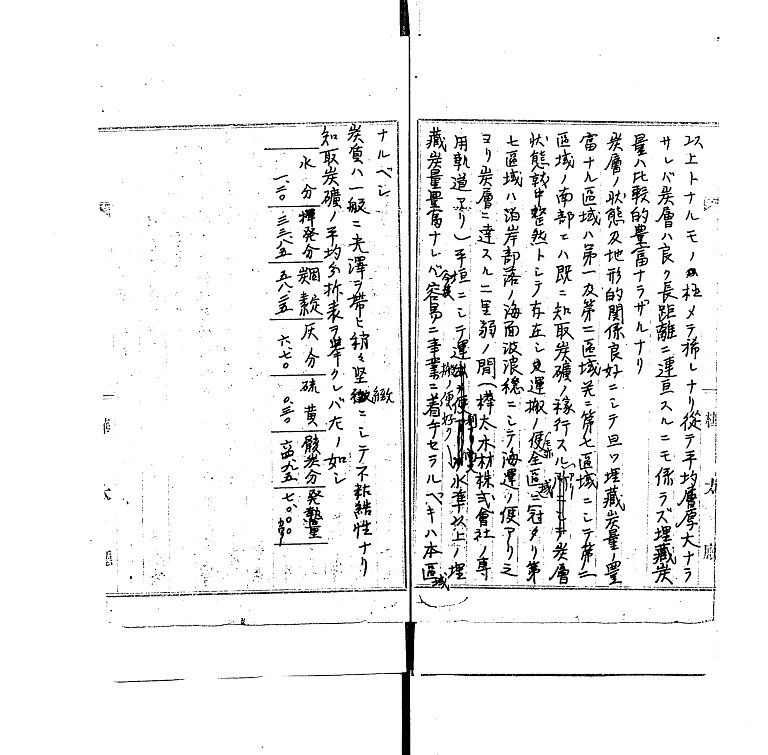 以上トナルモノハ極メテ稀レナリ從テ平均層厚大ナラ
サレバ炭層ハ良ク長距離ニ連亘スルニモ係ラズ埋藏炭
量ハ比較的豊富ナラザルナリ
炭層ノ状態及地形的關係良好ニシテ且ツ埋藏炭量ノ豊
富ナル區域ハ第一及第二區域並ニ第七區域ニシテ第二
區域ノ南部ニハ既ニ知取炭礦ノ稼行スルアリテ炭層
状態就中整然トシテ存在シ運搬ノ便全區域ニ冠タリ第
七區域ハ泊岸部落ノ海面波浪穏ニシテ海運ノ便アリ之
ヨリ炭層ニ達スル二里弱ノ間(樺太木材株式會社ノ専
用軌道アリ)平坦ニシテ運搬ノ便好ク水準以上ノ埋
藏炭量豊富ナレバ今後容易ニ事業ニ着手セラルベキハ本區域
ナルベシ
炭質ハ一般ニ光澤ヲ帯ヒ稍々堅緻ニシテ不粘結性ナリ
知取炭礦ノ平均分析表ヲ擧クレバ左ノ如シ
水分 揮発分 灰分 硫黄 発熱量
一.二〇 三三.八五 五八.二五 六.七〇 〇.三〇
樺太廳
樺太廳